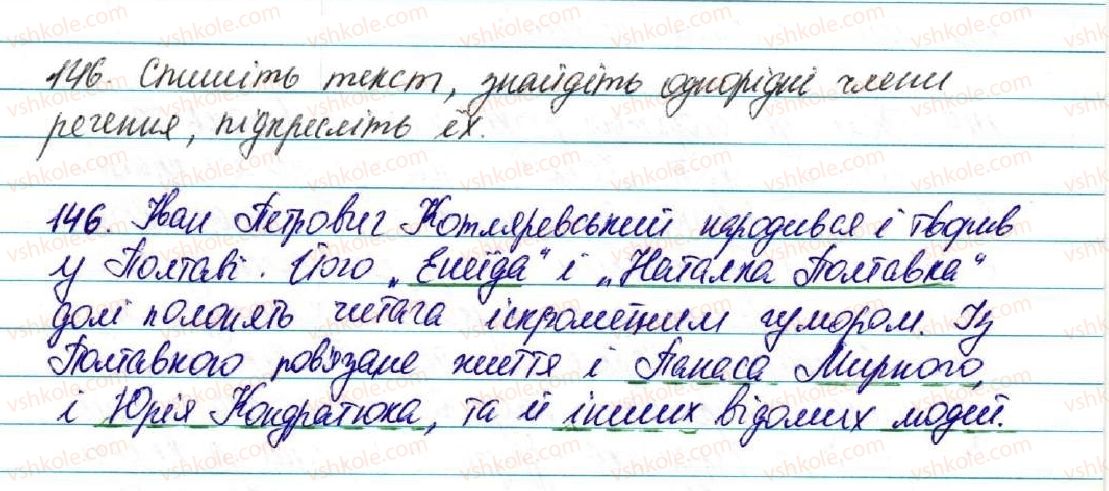 146. Спишіть текст, знайдіть однорідні члени
речення, підкресліть їх.
146. Іван Петрович Котляревський народився і творив
у Полтаві. Його „Енеїда“ і „Наталка Полтавка“
досі полонять читача іскрометним гумором. Із
Полтавкою пов'язане життя і Панаса Мирного,
і Юрія Кондратюка, та й інших відомих людей.